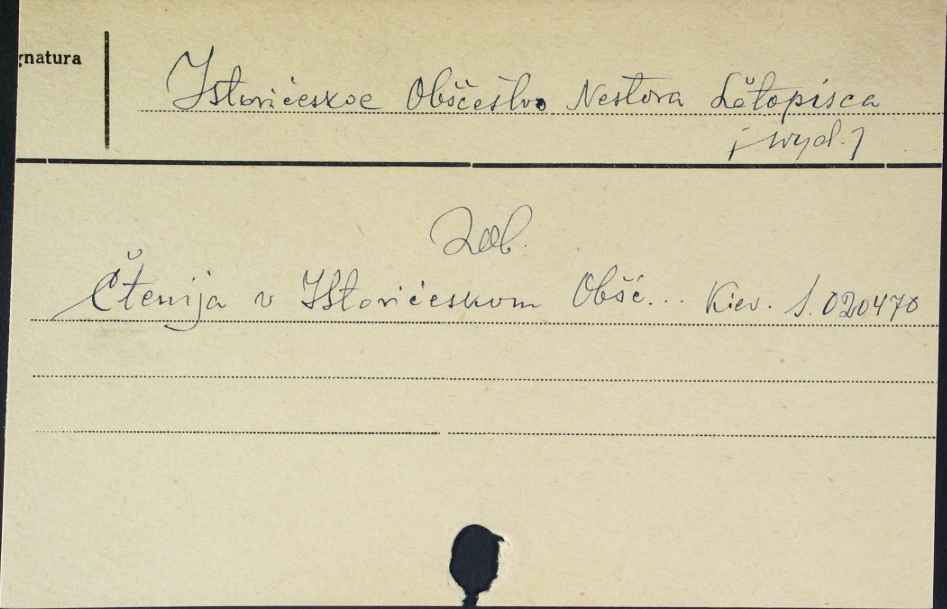 gnatura
Istoričeskoe Obščestvo Nestora Lětopisca
[wyd.]
Zob.
Čtenija v Istoričeskom Obšč... Kiev. S. 020470